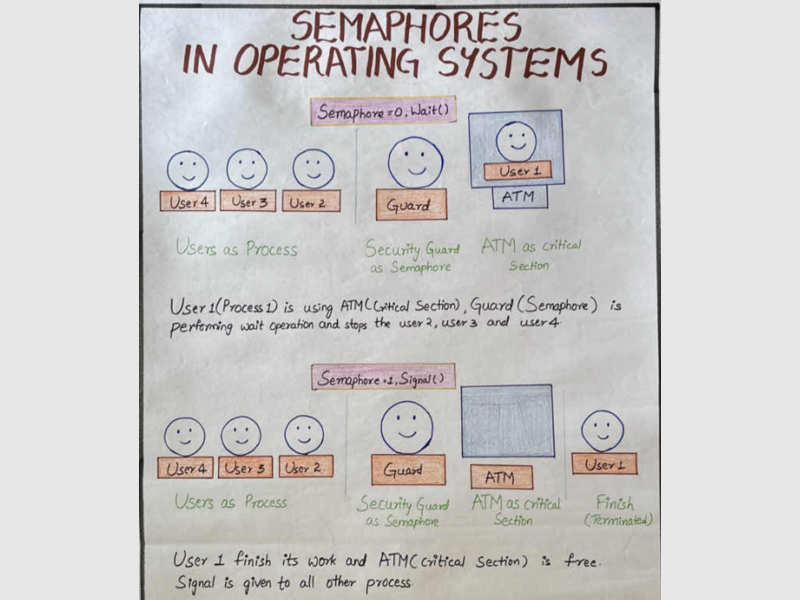 SEMAPHORES
IN OPERATING SYSTEMS
Semaphore=0, Wait()
User 4 User 3 User 2 Guard User 1
ATM
Users as Process Security Guard as Semaphore ATM as critical Section
User 1(Process 1) is using ATM(Critical Section), Guard (Semaphore) is
performing wait operation and stops the user 2, user 3 and user 4
Semaphore=1, Signal()
User 4 User 3 User 2 Guard ATM User 1
Users as Process Security Guard as Semaphore ATM as critical Section Finish (Terminated)
User 1 finish its work and ATM(critical Section) is free.
Signal is given to all other process